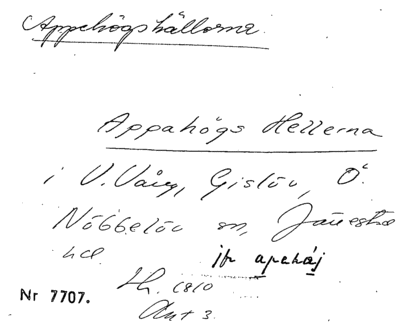 Appehögshällorna
Appahögs Hellerna
i V. Vång, Gislöv, Ö.
Nöbbelöv sn, Järrestad
hd. jfr apehåj
Lh. 1810
Akt 3.
Nr 7707.